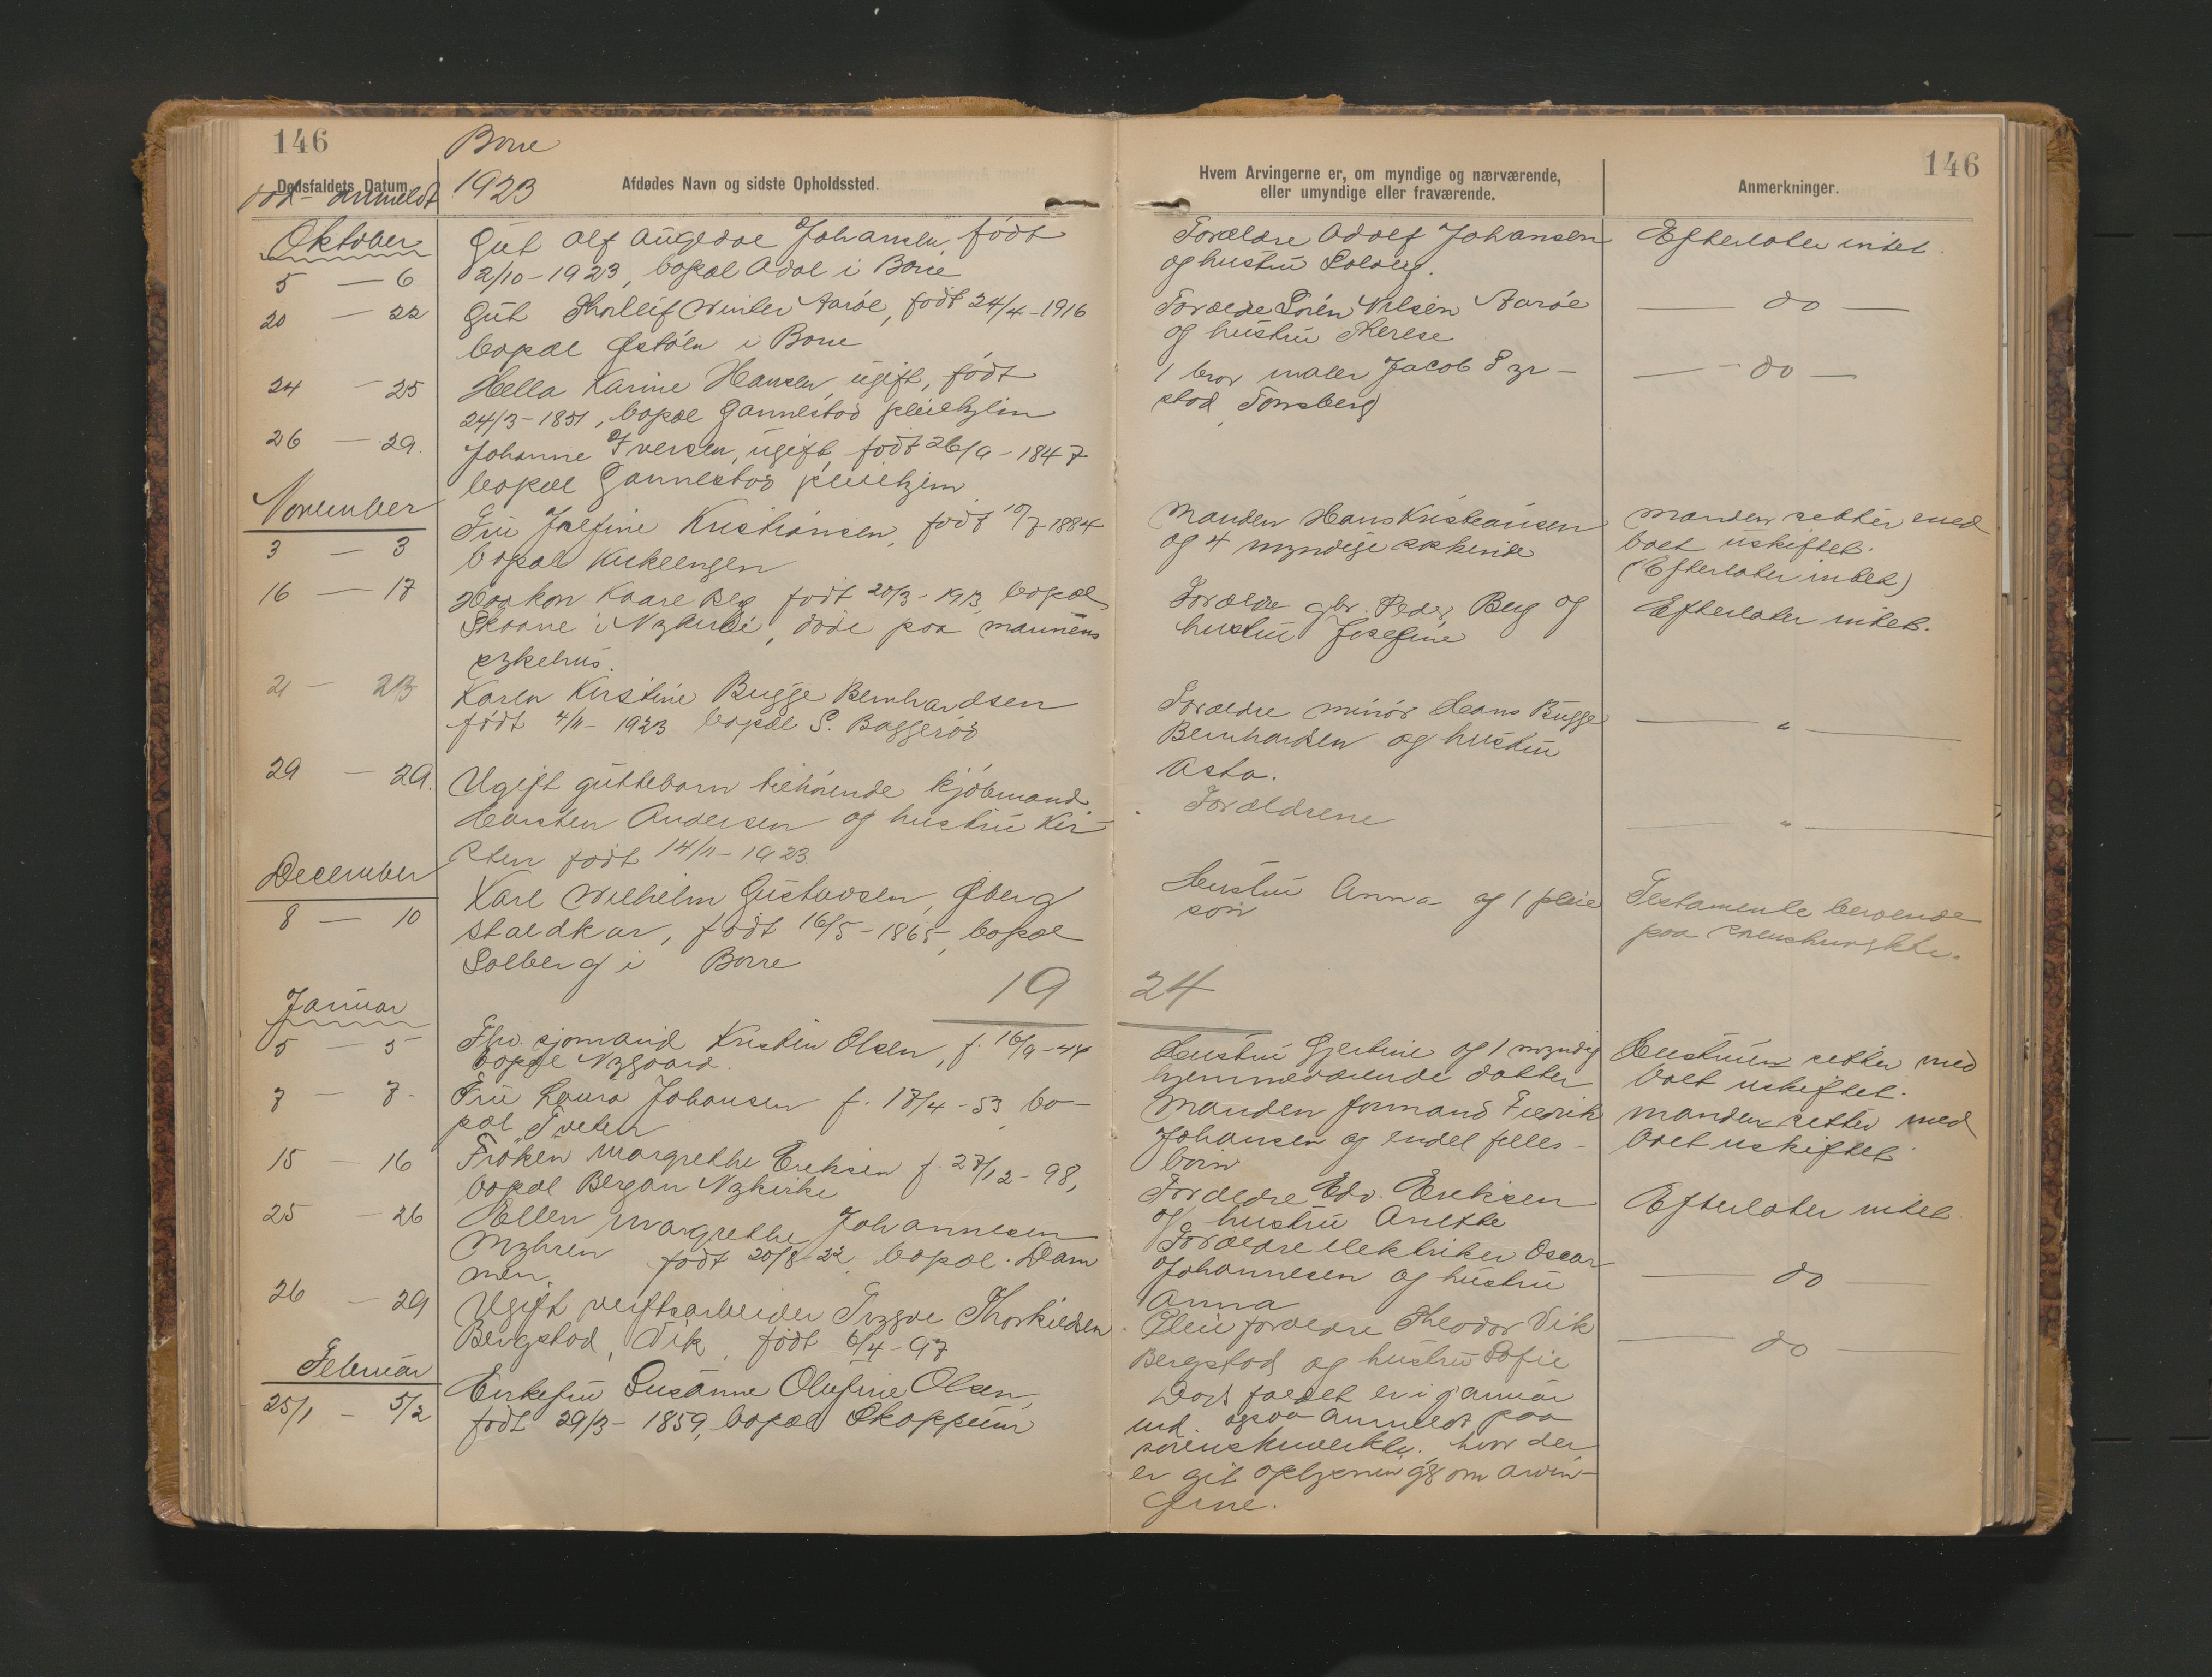 146
Borre
Dødsfaldets Datum.
død - anmeldt
1923
Afdødes Navn og sidste Opholdssted.
Oktober
5 — 6
Gut Alf Johansen, født
2/10-1923, bopæl Adal i Borre
20 — 22
Gut Thorleif Winter Aarøe, født 24/4-1916
bopæl i Borre
24 — 25
Hella Karine Hansen, ugift, født
24/3-1851, bopæl Gannestad pleiehjem
26 — 29.
Johanne Iversen, ugift, født 26/9-1847
bopæl Gannestad pleiehjem
November
3 — 3
Fru Josefine Kristiansen, født 10/7-1884
bopæl
16 — 17
Haakon Kaare Berg født 20/3-1913, bopæl
Skaane i Nykirke, døde paa
sykehus.
21 — 23
Karen Kirstine Bugge Bernhardsen
født 4/11-1923 bopæl S. Baggerød
29 — 29.
Ugift guttebarn tilhørende kjøbmand
Karsten Andersen og hustru Kir-
sten født 14/11-1923.
December
8 — 10
Karl Wilhelm Gustavsen, Øberg
staldkar, født 16/5-1865, bopæl
Solberg i Borre
19
Januar
5 — 5
Fhv. sjømand Kristin Olsen, f. 16/9-44
bopæl Nygaard.
7 — 7.
Fru Laura Johansen f. 17/4-53 bo-
pæl Tveten
15 — 16
Frøken Margrethe Eriksen f. 27/12-98,
bopæl Bergan Nykirke
25 — 26
Ellen Margrethe Johannesen
Myhren født 20/8-22 bopæl. Dam
men.
26 — 29
Ugift verftsarbeider Trygve Thorkildsen
Bergstad, Vik, født 6/4-97
Februar
25/1 - 5/2
Enkefru Susanne Olufine Olsen,
født 29/3-1859, bopæl Skoppum
146
Hvem Arvingerne er, om myndige og nærværende,
eller umyndige eller fraværende.
Anmerkninger.
Forældre Adolf Johansen
og hustru Solveig.
Efterlater intet.
Forældre Sørén Nilsen Aarøe
og hustru Therese
— do —
1 bror maler Jacob Syr-
stad, Tønsberg
— do —
Manden Hans Kristiansen
og 4 myndige søskende
Manden sitter med
boet uskiftet.
(Efterlater intet)
Forældre gbr. Peder Berg og
hustru Josefine
Efterlater intet.
Forældre minør Hans Bugge
Bernhardsen og hustru
Asta.
— " —
Forældrene
— " —
Hustru Anna og 1 pleie
søn
Testamente beroende
paa sorenskriverktr.
24
Hustru Gjertine og 1 myndig
hjemmeværende datter
Hustruen sitter med
boet uskiftet.
Manden formand Fredrik
Johansen og endel felles-
børn
Manden sitter med
boet uskiftet
Forældre Edv. Eriksen
og hustru Anette
Efterlater intet.
Forældre elektriker Oscar
Johannesen og hustru
Anna
— do —
Pleieforældre Theodor Vik
Bergstad og hustru Sofie
— do —
Dødsfaldet er i januar
md. ogsaa anmeldt paa
sorenskriverktr. hvor der
er git oplysning om arvin-
gerne.